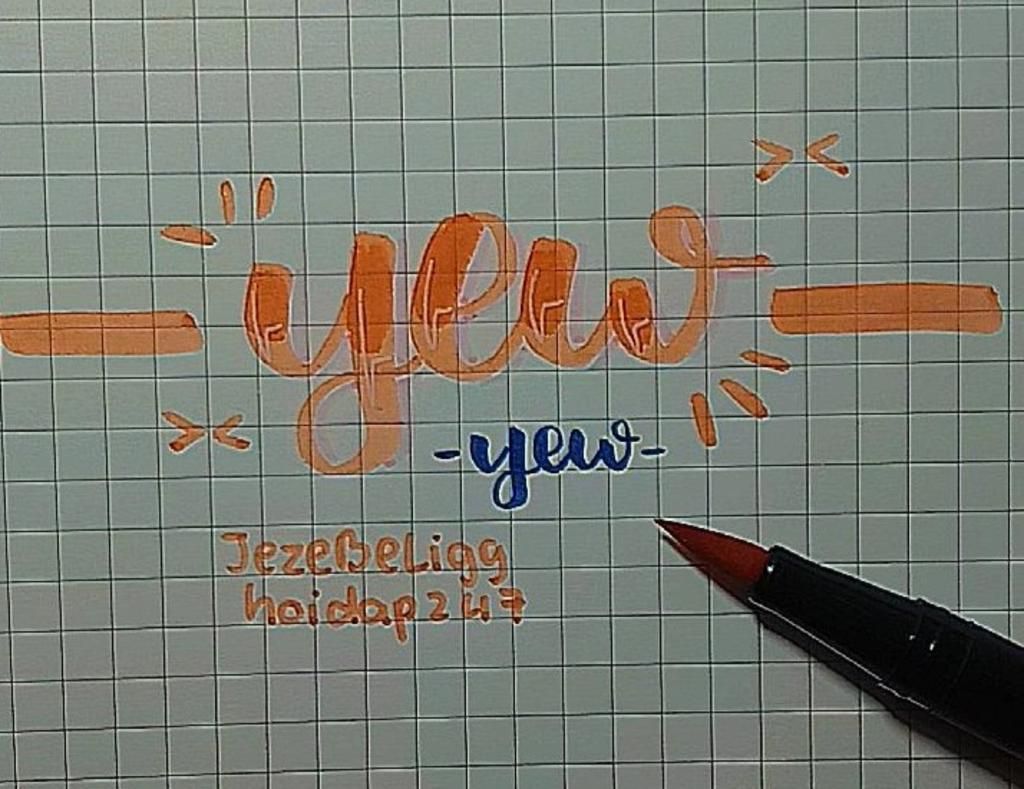 yew
-yew-
JezeBeLigg
hoidap247